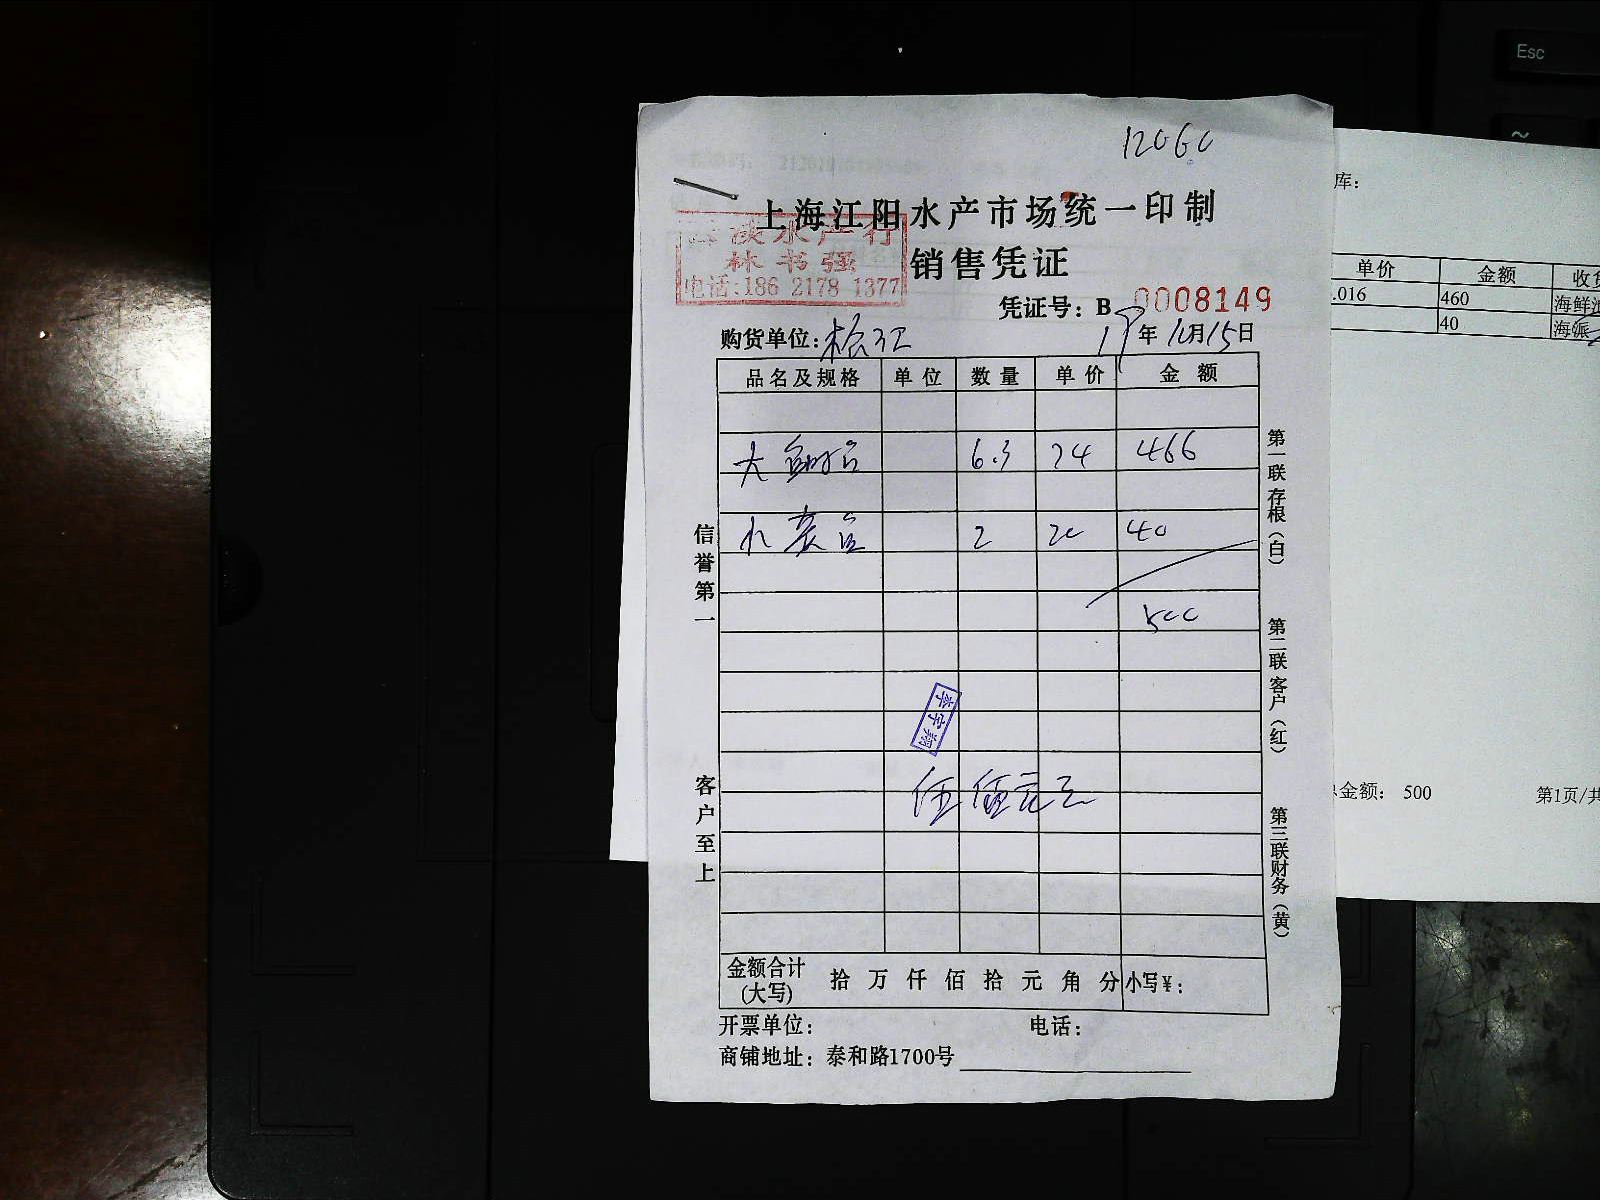 Esc
~
12060
上海江阳水产市场统一印制
销售凭证
淡水产行
林书强
电话:186 2178 1377
凭证号：B 0008149
购货单位：松江
19年10月15日
品名及规格 单位 数量 单价 金额
大 6.3 74 466
2 20 40
500
李宇翔
伍佰元正
金额合计(大写) 拾 万 仟 佰 拾 元 角 分 小写¥：
开票单位： 电话：
商铺地址：泰和路1700号
信誉第一
客户至上
第一联存根(白)
第二联客户(红)
第三联财务(黄)
库：
单价 金额
.016 460 海鲜
40 海派
金额： 500
第1页/共